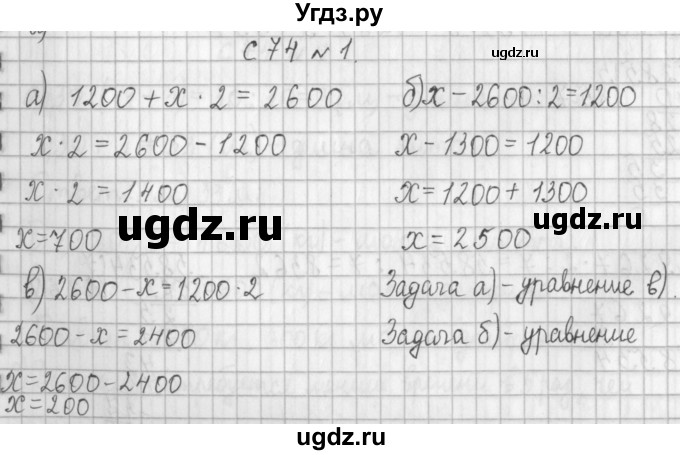 Угдз.ру
с 74 № 1.
ugdz.ru
а) 1200 + х · 2 = 2600
х · 2 = 2600 - 1200
х · 2 = 1400
х = 700
б) х - 2600 : 2 = 1200
х - 1300 = 1200
х = 1200 + 1300
х = 2500
ugdz.ru
ugdz.ru
в) 2600 - х = 1200 · 2
2600 - х = 2400
х = 2600 - 2400
х = 200
Задача а) - уравнение в).
Задача б) - уравнение
ugdz.ru